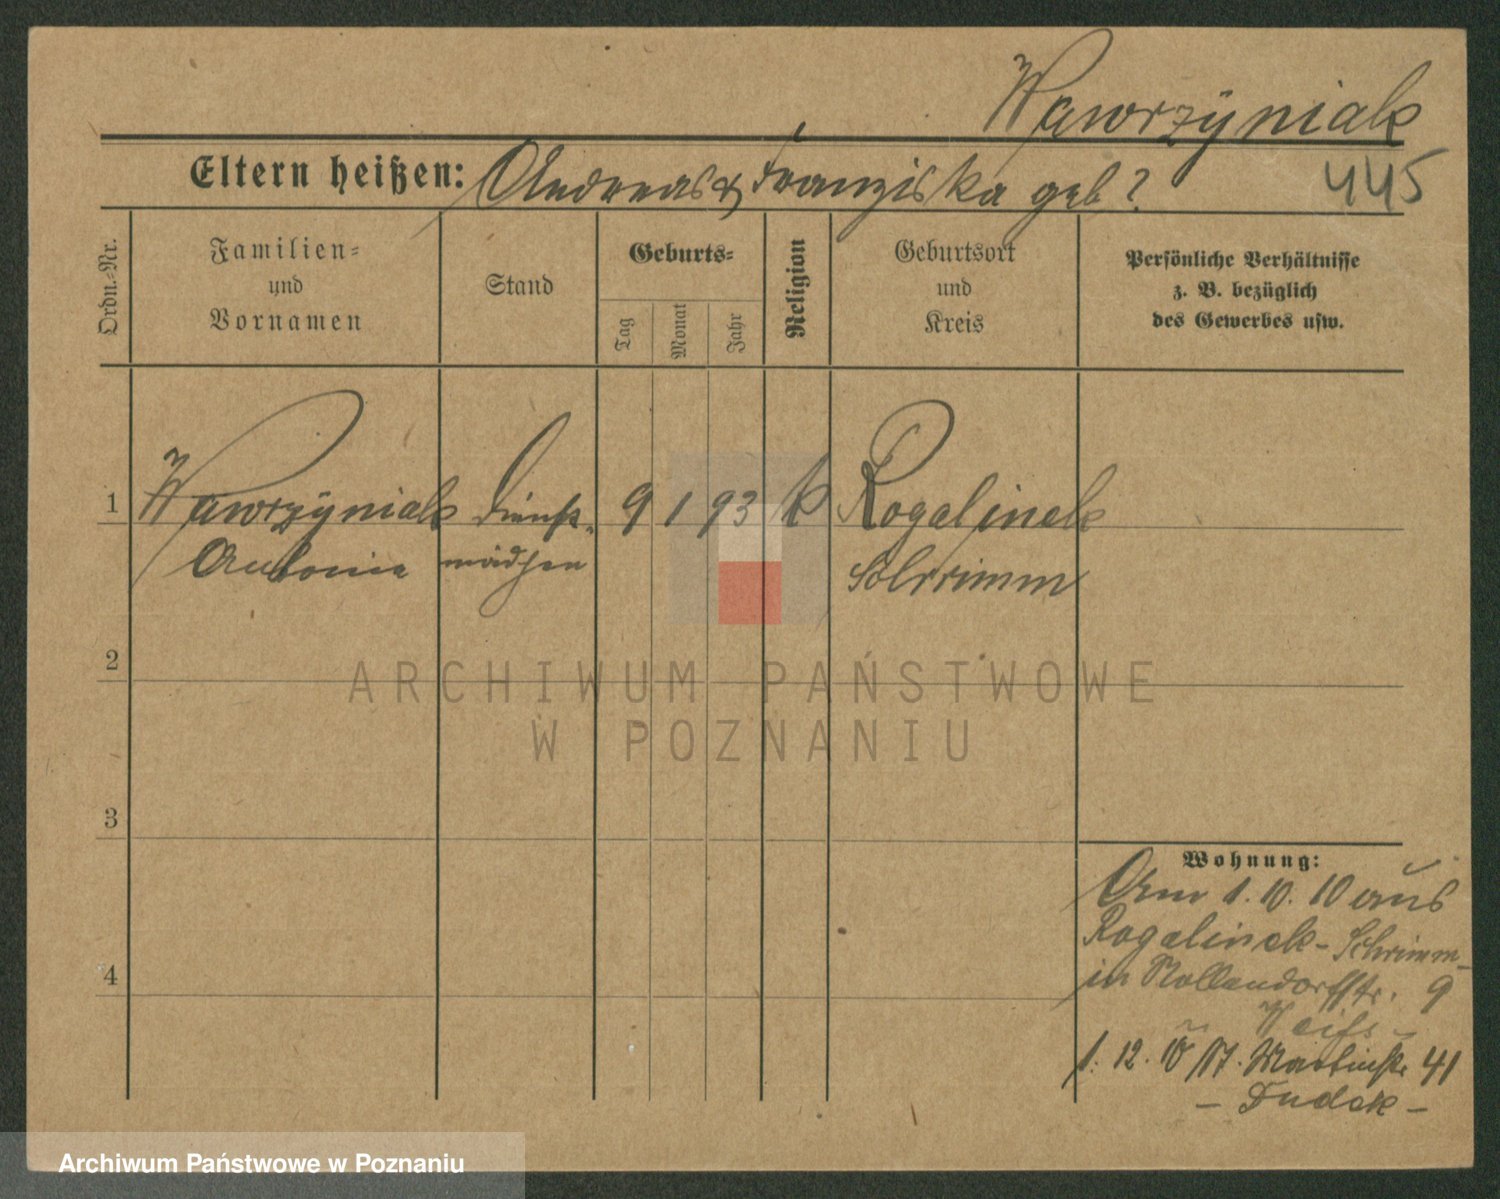 Wawrzÿniak
Eltern heißen: Andreas & Franziska geb?
445
Ordn.-Nr.
Familien-
und
Vornamen
Stand
Geburts-
Tag
Monat
Jahr
Religion
Geburtsort
und
Kreis
Persönliche Verhältnisse
z. B. bezüglich
des Gewerbes usw.
1
Wawrzÿniak
Antonie
Dienst-
mädchen
9 1 93 k
Rogalinek
Schrimm
2
3
4
Wohnung:
Am 1. 10. 10 aus
Rogalinek - Schrimm
in Nollendorffstr. 9
Weiss -
1. 12. 10 St. Martinstr 41
- Dudek -
ARCHIWUM PAŃSTWOWE
W POZNANIU
Archiwum Państwowe w Poznaniu